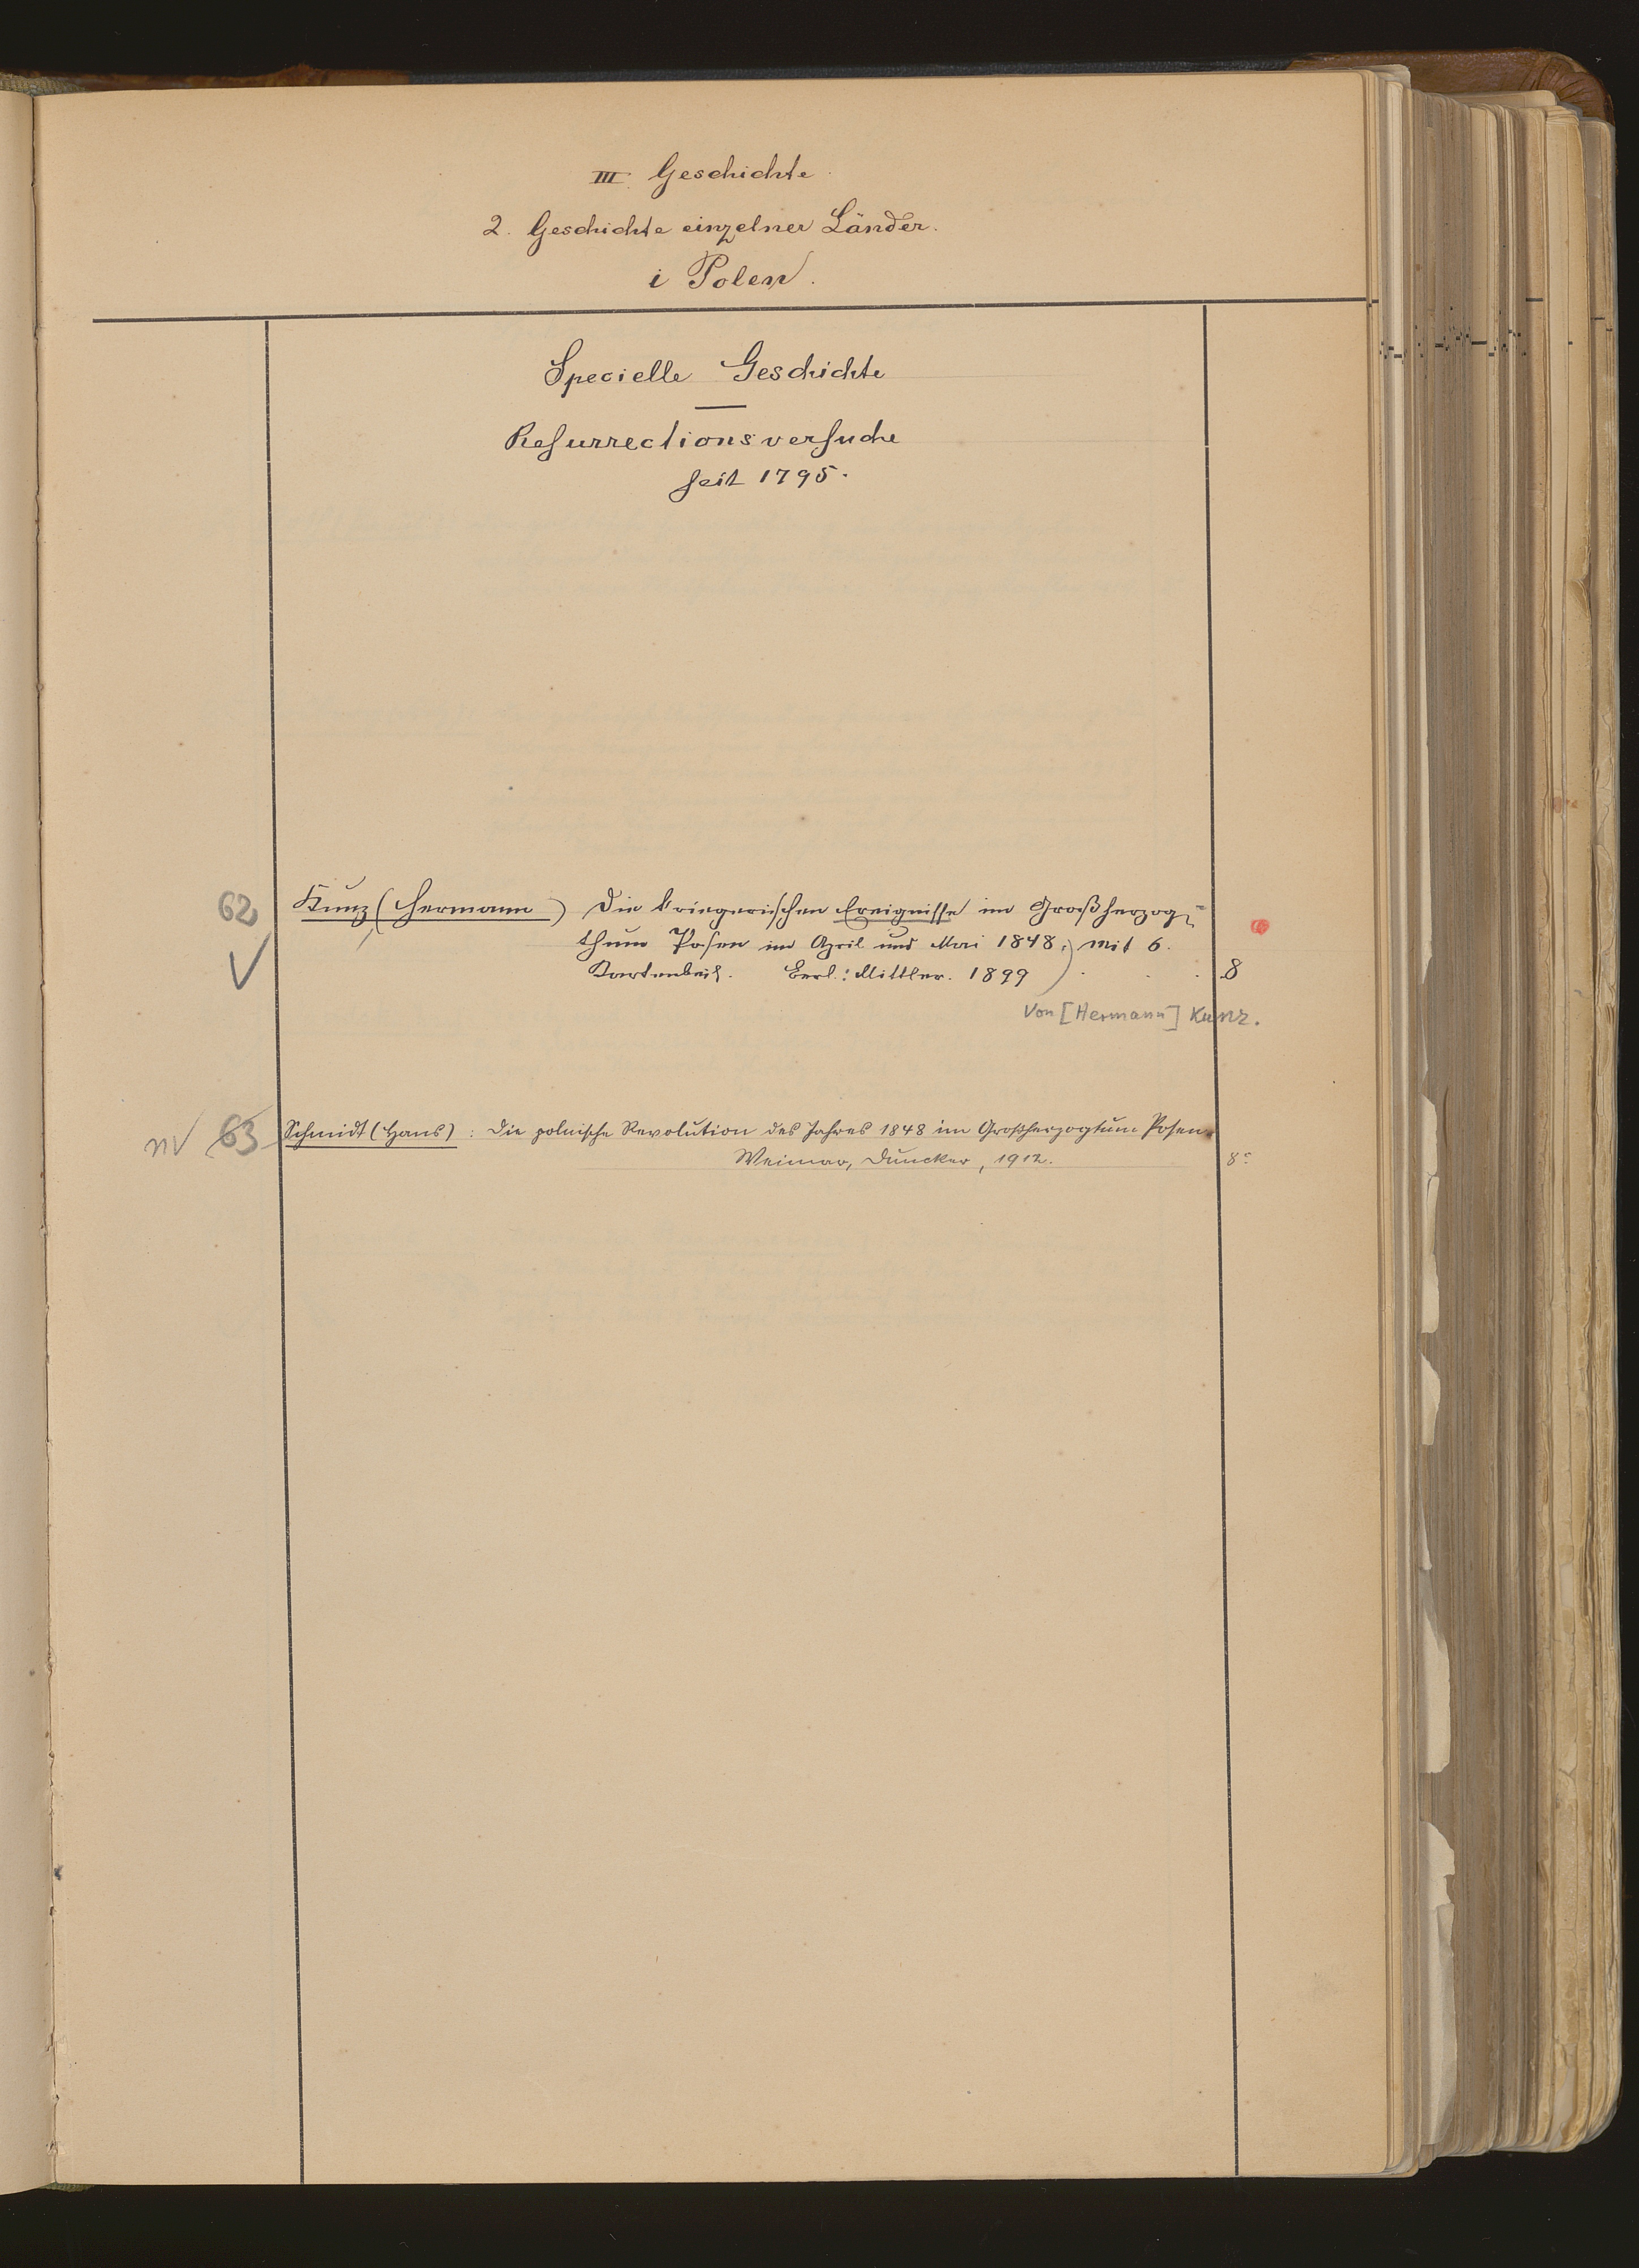 III. Geschichte.
2. Geschichte einzelner Länder.
i Polen.
Specielle Geschichte
Resurrectionsversuche
seit 1795.
62 Kunz (Hermann) Die kriegerischen Ereignisse im Großherzog-
thum Posen im April und Mai 1848.) mit 6.
✓ Kartenbeil. Berl.: Mittler. 1899) . . . 8
Von [Hermann] Kunz.
nv 63 Schmidt (Hans): Die polnische Revolution des Jahres 1848 im Großherzogtum Posen.
Weimar, Duncker, 1912. 8°